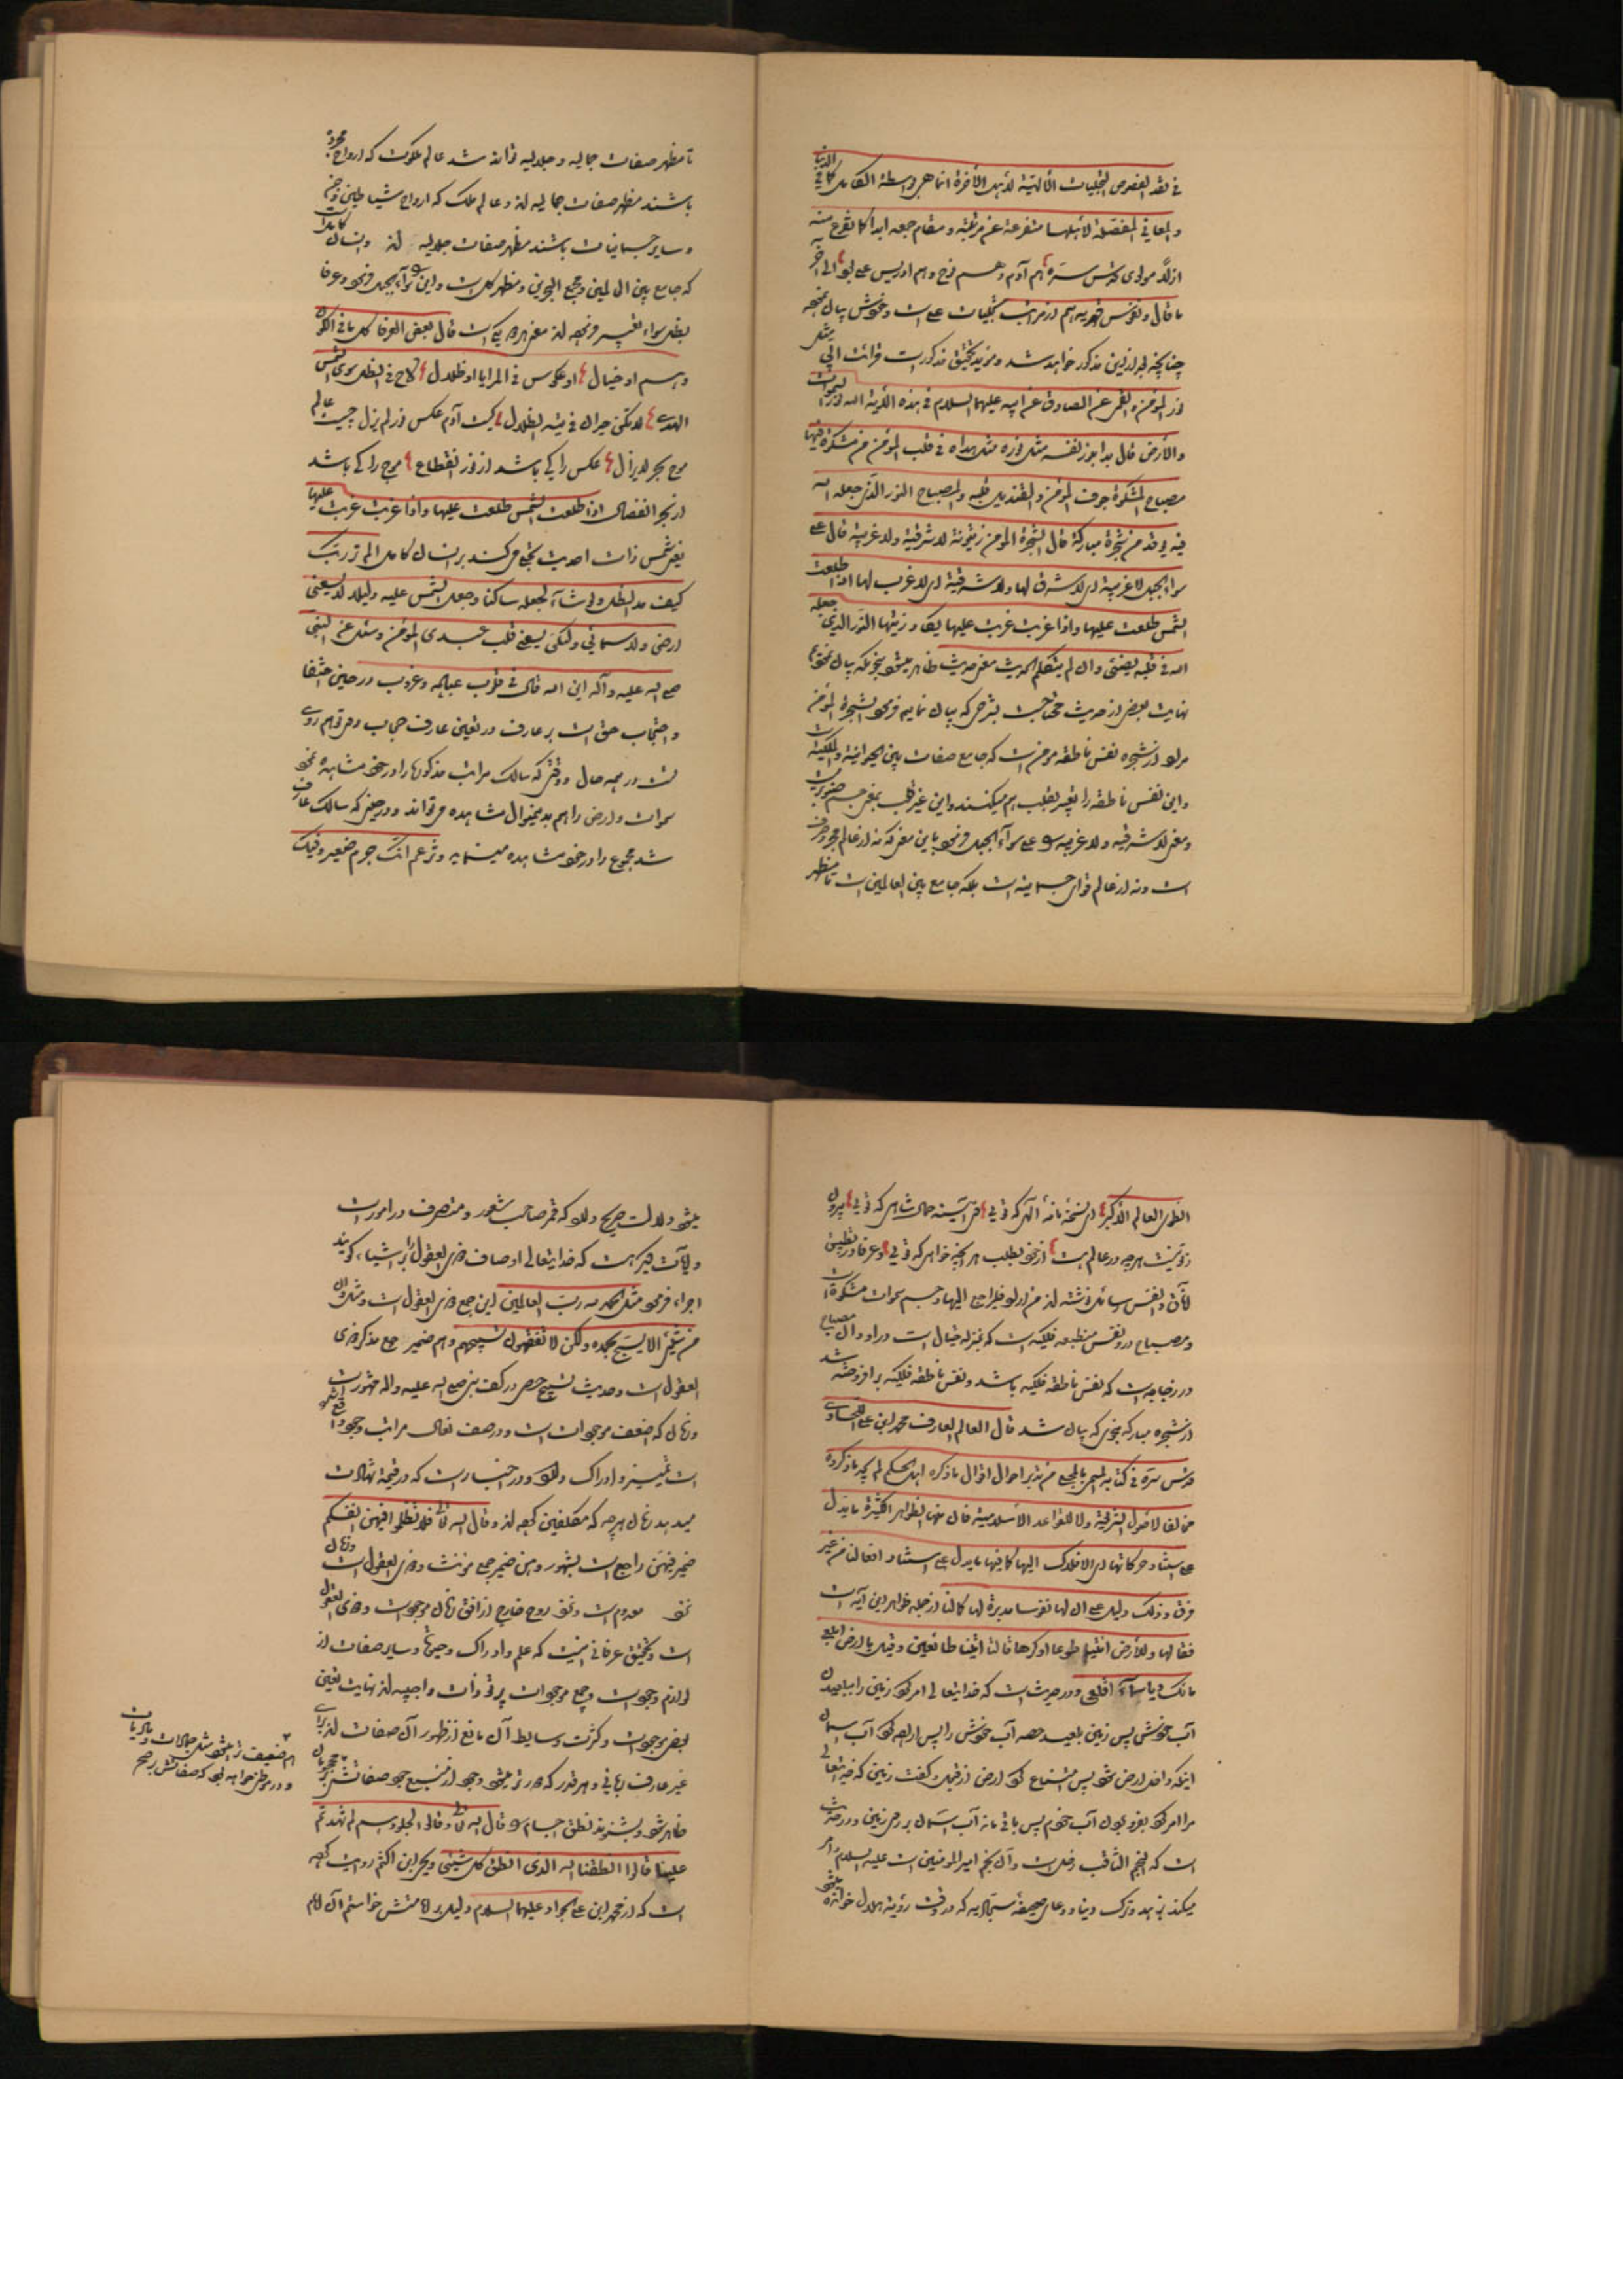 فی نقد الفصوص التجلیات الالهیة لأهل الآخرة انما هی بواسطة الکامل کما فی الدنیا
والمعانی المفصلة لأهلها متفرعة عن مرتبته و مقام جمعه ابدا کما تفرع منه
ازلا مولوی قدس سره هم آدم و هم نوح و هم ادریس علی بود الی آخر
ما قال و نفوس قهریه هم از مراتب تجلیات علی است و خودش بیان نموده
چنانچه بعد ازین مذکور خواهد شد و مؤید تحقیق مذکور است قرائت ابی مثل
نور المؤمن و القمی عن الصادق عن ابیه علیهما السلام فی هذه الآیة الله نور السموات
والأرض قال بدا بنور نفسه مثل نوره مثل هداه فی قلب المؤمن کمشکوة فیها
مصباح المشکوة جوف المؤمن و القندیل قلبه والمصباح النور الذی جعله الله
فیه یوقد من شجرة مبارکة قال الشجرة المؤمن زیتونة لا شرقیة ولا غربیة قال علی
سواء الجبل لا غربیة ای لا شرق لها ولا شرقیة ای لا غرب لها اذا طلعت
الشمس طلعت علیها واذا غربت غربت علیها یکاد زیتها النور الذی جعله
الله فی قلبه یضیئ وان لم یتکلم الحدیث معنی حدیث ظاهر میشود بنحویکه بیان نمودیم
نهایت بعض از حدیث محتاجست بشرحی که بیان نمایم فرمود الشجرة المؤمن
مراد از شجره نفس ناطقه مومن است که جامع صفات بین الحیوانیة والملکیة است
واین نفس ناطقه را تعبیر بقلب هم میکنند و این غیر قلب بمعنی جسم صنوبری است
ومعنی لا شرقیه ولا غربیه علی سواء الجبل فرمود باین معنی که نه از عالم مجرد صرف
است و نه از عالم قوای جسمانیه است بلکه جامع بین العالمین است تا مظهر
تا مظهر صفات جمالیه و جلالیه تواند شد عالم ملکوت که ارواح مجرده
باشند مظهر صفات جمالیه اند و عالم ملک که ارواح شیاطین و جن
و سایر جسمانیات باشند مظهر صفات جلالیه اند و انسان کامل است
که جامع بین العالمین و مجمع البحرین و مظهر کل است و این را سواء الجبل فرمود و عرفا
بظل سواء تعبیر فرموده اند معنی هر دو یکی است قال بعض العرفا کل ما فی الکون
وهم او خیال او عکوس فی المرایا او ظلال لاح فی الظل سوی شمس
الهدی لا تکن حیران فی تیه الظلال کیست آدم عکس نور لم یزل چیست عالم
موج بحر لا یزال عکس را کی باشد از نور انقطاع موج را کی باشد
از بحر انفصال اذا طلعت الشمس طلعت علیها واذا غربت غربت علیها
یعنی شمس ذات احدیت تجلی می کند بر انسان کامل الم تر الی ربک
کیف مد الظل ولو شاء لجعله ساکنا وجعل الشمس علیه دلیلا لا یسعنی
ارضی ولا سمائی ولکن یسعنی قلب عبدی المؤمن وسئل عن النبی
صلی الله علیه وآله این الله قال فی قلوب عباده و غروب در حین اختفا
و احتجاب حق است بر عارف و در تعین عارف حجاب
است در همه حال و وقتی که سالک مراتب مذکوره را در خود مشاهده نمود
سموات و ارض را هم بدینمنوال مشاهده می تواند و در حینی که سالک عارف
شد مجموع را در خود مشاهده مینماید وتزعم انک جرم صغیر وفیک
انطوی العالم الاکبر ای نسخه نامه الهی که توئی وی آئینه جمال شاهی که توئی بیرون
ز تو نیست هر چه در عالم هست از خود بطلب هر آنچه خواهی که توئی و عرفا در تطبیق
آفاق و انفس رسائل نوشته اند من اراد فلیراجع الیها و جسم سموات مشکوة است
و مصباح در او نفس منطبعه فلکیه است که بمنزله خیال است در او و آن مصباح
در زجاجه است که نفس ناطقه فلکیه باشد و نفس ناطقه فلکیه برافروخته شد
از شجره مبارکه بنحوی که بیان شد قال العالم العارف محمد ابن علی
قدس سره فی کتابه المسمی بالمجلی
مخالفا لاصول الشرعیة ولا للقواعد الاسلامیة فان منها الظواهر الکثیرة ما یدل
علی استناد حرکاتها ای الافلاک الیها کما فیها ما یدل علی استناد افعالنا من غیر
فرق و ذلک دلیل علی ان لها نفوسا مدبرة لها کما لنا از جمله ظواهر این آیه است
فقال لها وللأرض ائتیا طوعا او کرها قالتا اتینا طائعین وقیل یا ارض ابلعی
مائک ویا سماء اقلعی و در حدیث است که خدایتعالی امر کرد زمین را ببلعیدن
آب خودش پس زمین بلعید حصه آب خودش را پس اراده کرد آب سماء
اینکه داخل ارض شود پس امتناع کرد ارض از قبول و گفت زمین که خدایتعالی
مرا امر کرد بفرو بردن آب خودم پس باقی ماند آب سماء بر روی زمین و در حدیث
است که النجم الثاقب زحل است و آن نجم امیر المؤمنین است علیه السلام و امر
میکند بزهد و ترک دنیا و دعای صحیفه سجادیه که در وقت رؤیت هلال خوانده
میشود دلالت صریح دارد که قمر صاحب شعور و متصرف در امور است
و آیات کثیره است که خدایتعالی اوصاف ذوی العقول را بر اشیاء
اجراء فرمود مثل الحمد لله رب العالمین این جمع ذوی العقول است و مثل وان
من شیئ الا یسبح بحمده ولکن لا تفقهون تسبیحهم و هم ضمیر جمع مذکر ذوی
العقول است و حدیث تسبیح حصی در کف نبی صلی الله علیه واله مشهور است
و زمان که اضعف موجودات است و در صف نعال مراتب وجود واقع شده
است تمییز و ادراک دارد و در اخبار است که در قیمة شهادت
میدهد زمان بهر چه که مکلفین کرده اند و قال الله تعالی فلا تظلموا فیهن انفسکم
ضمیر فیهن راجع است بشهور و هن ضمیر جمع مؤنث ذوی العقول است و زمان
است و تحقیق عرفانی اینست که علم و ادراک و حیوة و سایر صفات از
لوازم وجود است و جمیع موجودات پرتو ذات واجبیه اند نهایت تعین
بعض موجودات و کثرت وسایط آن مانع از ظهور آن صفات اند برای
غیر عارف ربانی و هر قدر که دورتر میشود وجود از منبع جود صفاتش
ظاهر شود و بشنوند نطق اجسام قال الله تعالی وقالوا لجلودهم لم شهدتم
علینا قالوا انطقنا الله الذی انطق کل شیئی و یحیی ابن اکثم روایت کرده
است که از محمد ابن علی الجواد علیهما السلام دلیل بر امامتش خواستم آن امام